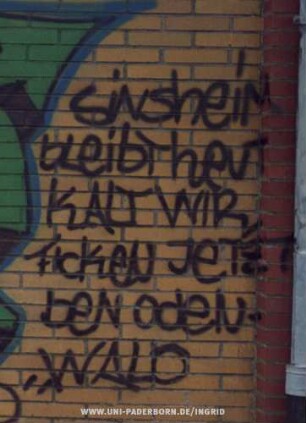 SINSHEIM
BLEIBT HEUT
KALT WIR
FICKEN JETZT
DEN ODEN-
„WALD
WWW.UNI-PADERBORN.DE/INGRID